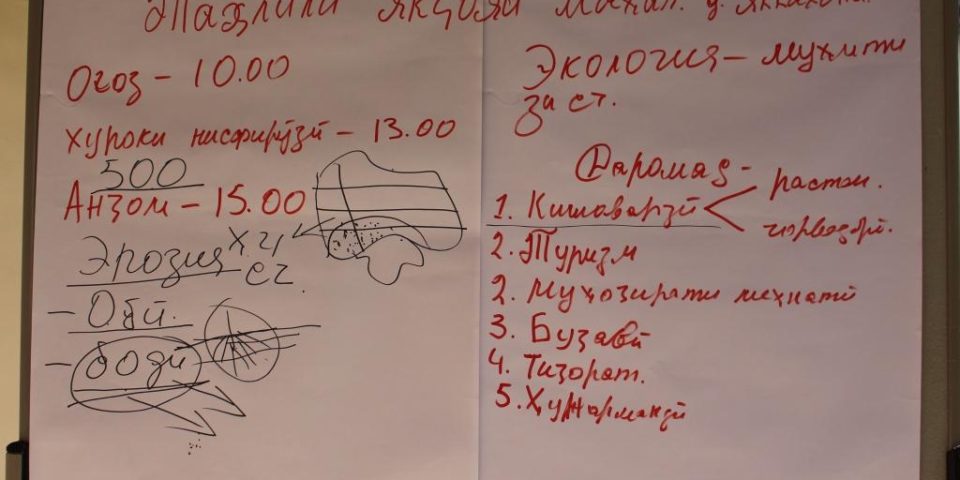 Таҳлили якҷояи маҳал. д. Яккахона
Оғоз – 10.00
хӯроки нисфирӯзӣ – 13.00
500
Анҷом – 15.00
Эрозия
- Обӣ.
- бодӣ
Экология – муҳити
за ст.
Даромад -
1. Кишоварзӣ
растан.
чорводорӣ.
2. Туризм
2. Муҳоҷирати меҳнатӣ
3. Бузавӣ
4. Тиҷорат.
5. Ҳунармандӣ